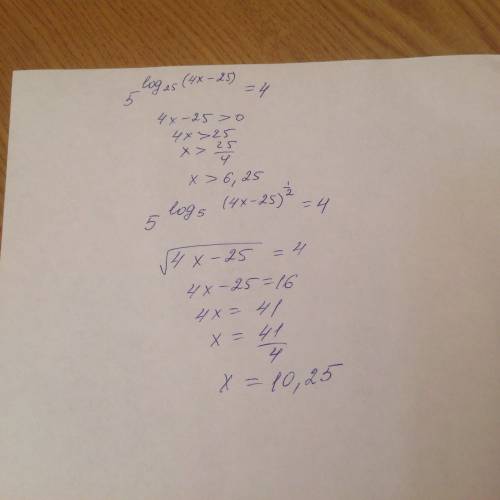 5^{log_{25}(4x-25)} = 4
4x-25>0
4x>25
x> \frac{25}{4}
x>6,25
5^{log_5 (4x-25)^{\frac{1}{2}}} = 4
\sqrt{4x-25} = 4
4x-25=16
4x= 41
x= \frac{41}{4}
x = 10,25